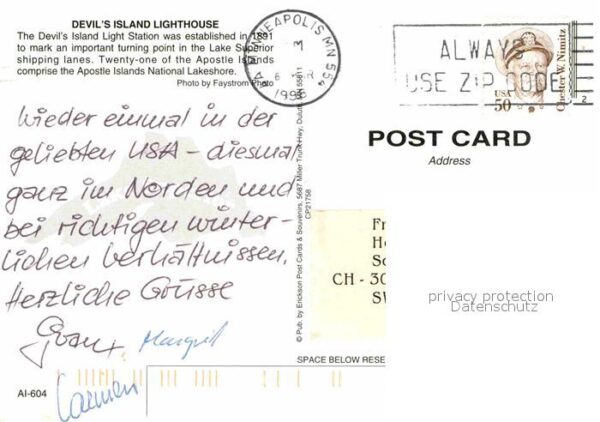 DEVIL'S ISLAND LIGHTHOUSE
The Devil's Island Light Station was established in 1891
to mark an important turning point in the Lake Superior
shipping lanes. Twenty-one of the Apostle Islands
comprise the Apostle Islands National Lakeshore.
Photo by Faystrom Photo
MINNEAPOLIS MN 554
1996
ALWAYS
USE ZIP CODE
USA
50
Chester W. Nimitz
POST CARD
Address
Wieder einmal in der
geliebten USA - diesmal
ganz im Norden und
bei richtigen winter-
lichen Verhältnissen.
Herzliche Grüsse
Margrit
Carmen
© Pub. by Erickson Post Cards & Souvenirs, 5687 Miller Trunk Hwy, Duluth, 55811
CP21758
Fr
He
Sc
CH - 30
SW
privacy protection
Datenschutz
SPACE BELOW RESE
AI-604